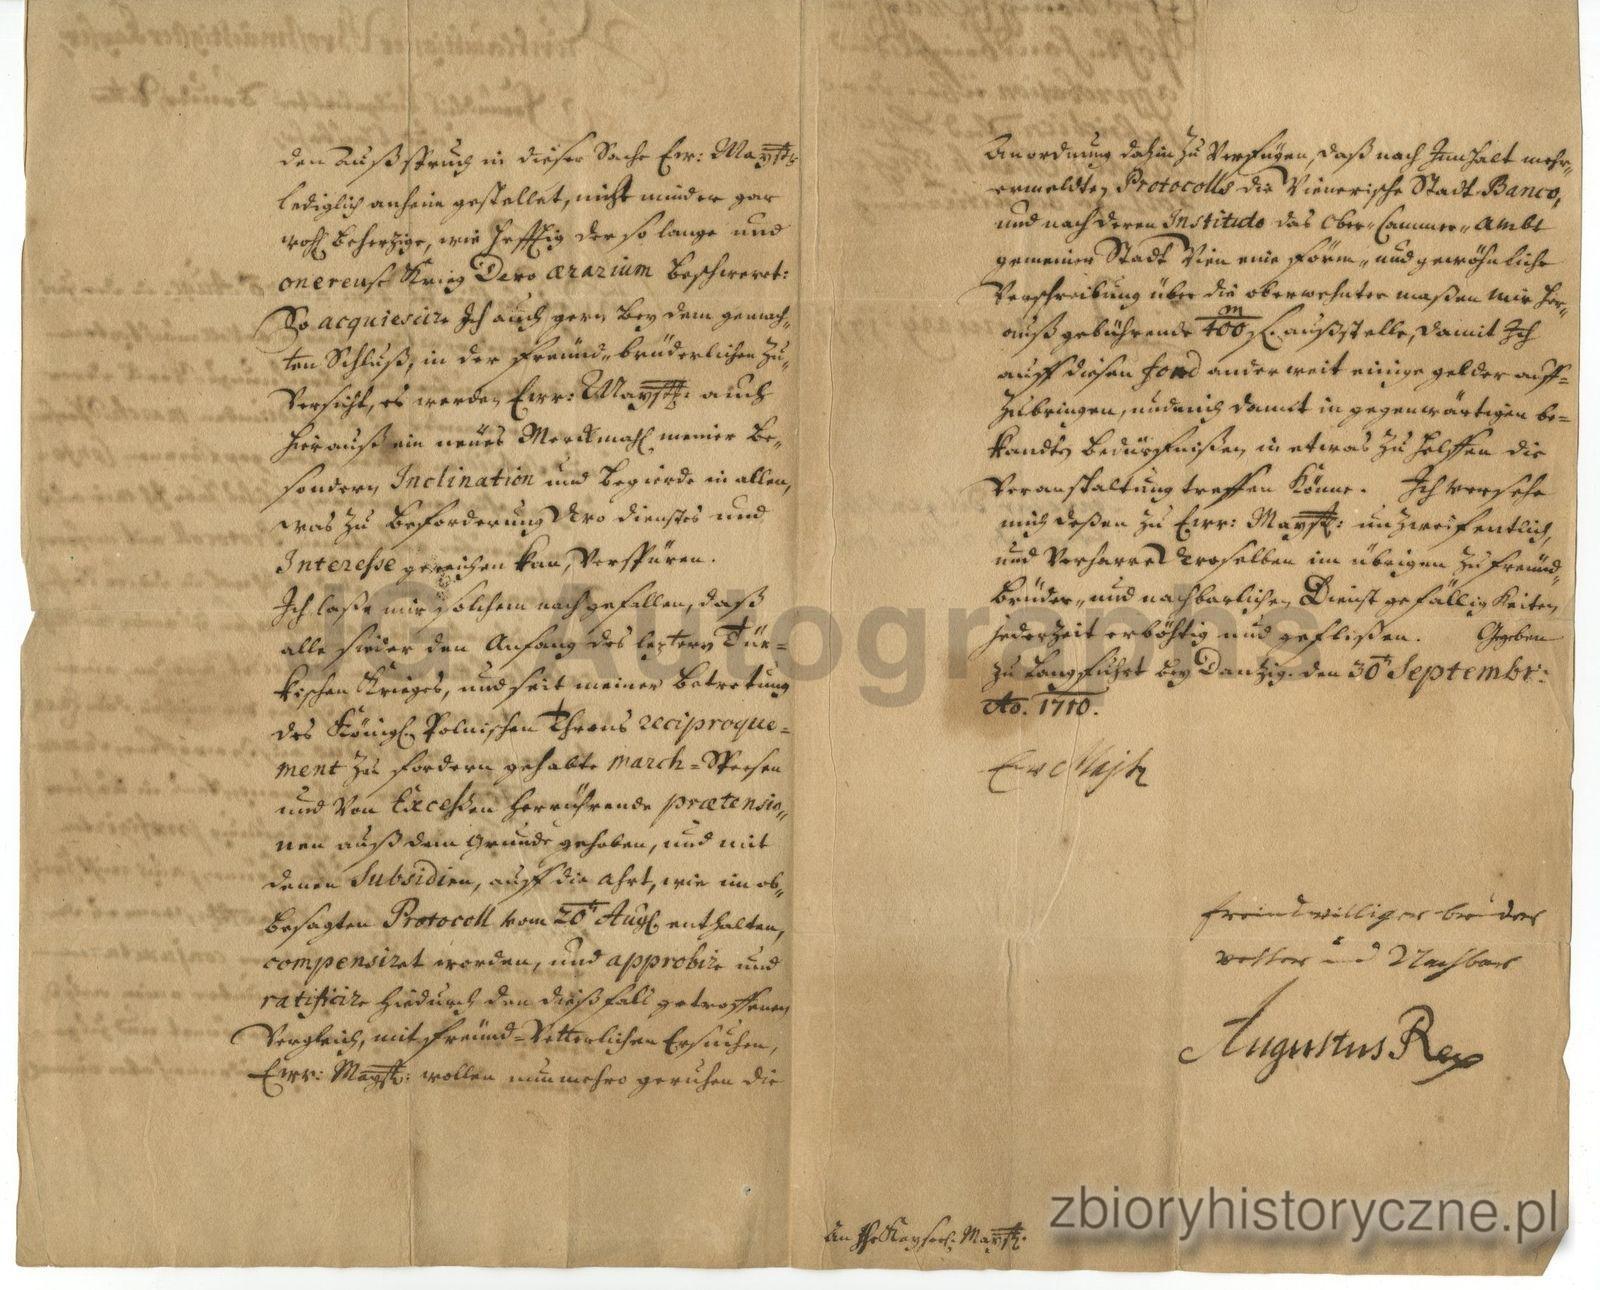 den Außspruch in dieser Sache Ew: Mayst:
lediglich anheim gestellet, nicht minder gar
wohl beherzige, wie hefftig der so lange und
onereuse Krieg Dero ærarium beschweret:
So acquiescire Ich auch gern bey dem gemach„
ten Schluß, in der freünd„brüderlichen Zu„
versicht, es werden Ew: Mayst: auch
hierauß ein neües Merckmahl meiner be„
sondern Inclination und begierde in allen,
was zu beforderung Dero dienstes und
Interesse gereichen kan, verspüren.
Ich laße mir solchem nach gefallen, daß
alle sieder den Anfang des leztern Tür=
kischen Krieges, und seit meiner betretung
des Königl. Polnischen Throns reciproque=
ment zu fordern gehabte march=Speesen
und von Excessen herrührende prætensio„
nen auß dem Grunde gehoben, und mit
denen Subsidien, auff die ahrt, wie im ob„
besagten Protocoll vom 20t Aug. enthalten,
compensiret worden, und approbire und
ratificire hiedurch den dießfalls getroffenen
Vergleich, mit freünd=Vetterlichen Ersuchen,
Ew: Mayst: wollen nunmehro geruhen die
Anordnung dahin zu verfügen, daß nach Innhalt mehr„
ermeldten Protocolls die Wienerische Stadt Banco,
und nach deren Instituto das Ober„Cammer„Ambt
gemeiner Stadt Wien eine förm„ und gewöhnliche
Verschreibung über die oberwehnter maßen mir her„
auß gebührende 400 m fl. außstelle, damit Ich
auff diesen fond anderweit einige gelder auff=
zubringen, und mich damit in gegenwärtigen be=
kandten bedürfnißen in etwas zu helffen die
Veranstaltung treffen könne. Ich versehe
mich deßen zu Ew: Mayst: unzweifentlich,
und verharre Deroselben im übrigen zu freünd„
brüder„ und nachbarlichen Dienstgefälligkeiten
jederzeit erböhtig und geflißen. Gegeben
zu Langfuhrt bey Dantzig. den 30t Septembr:
Ao. 1710.
Ew Majt
freindwilliger bruder
vetter und Nachbar
Augustus Rex
An Kayserl. Mayst:
Autographs
zbioryhistoryczne.pl